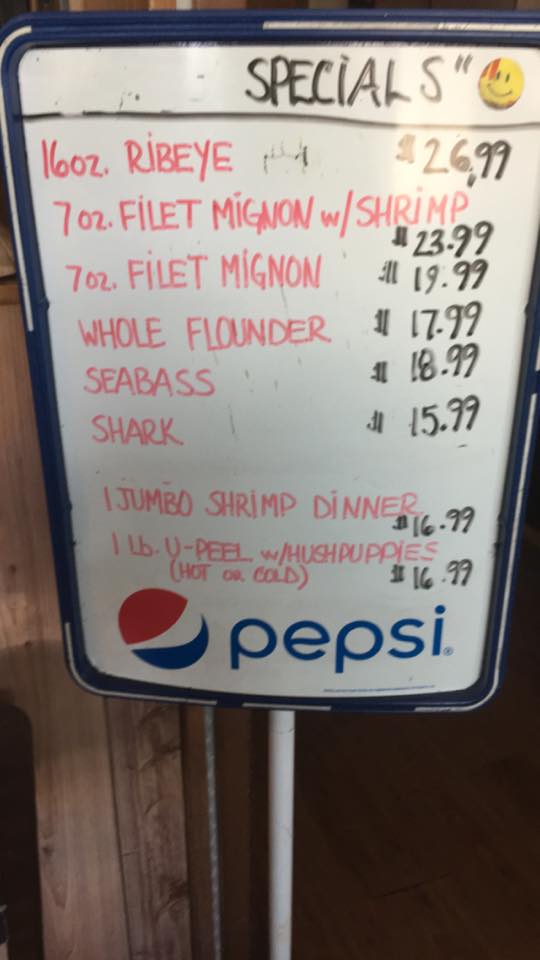 SPECIALS"
16oz. RIBEYE $26.99
7oz. FILET MIGNON w/SHRIMP
$23.99
7oz. FILET MIGNON $19.99
WHOLE FLOUNDER $17.99
SEABASS $18.99
SHARK $15.99
1 JUMBO SHRIMP DINNER
$16.99
1 Lb. U-PEEL w/HUSHPUPPIES
(HOT OR COLD) $16.99
pepsi®